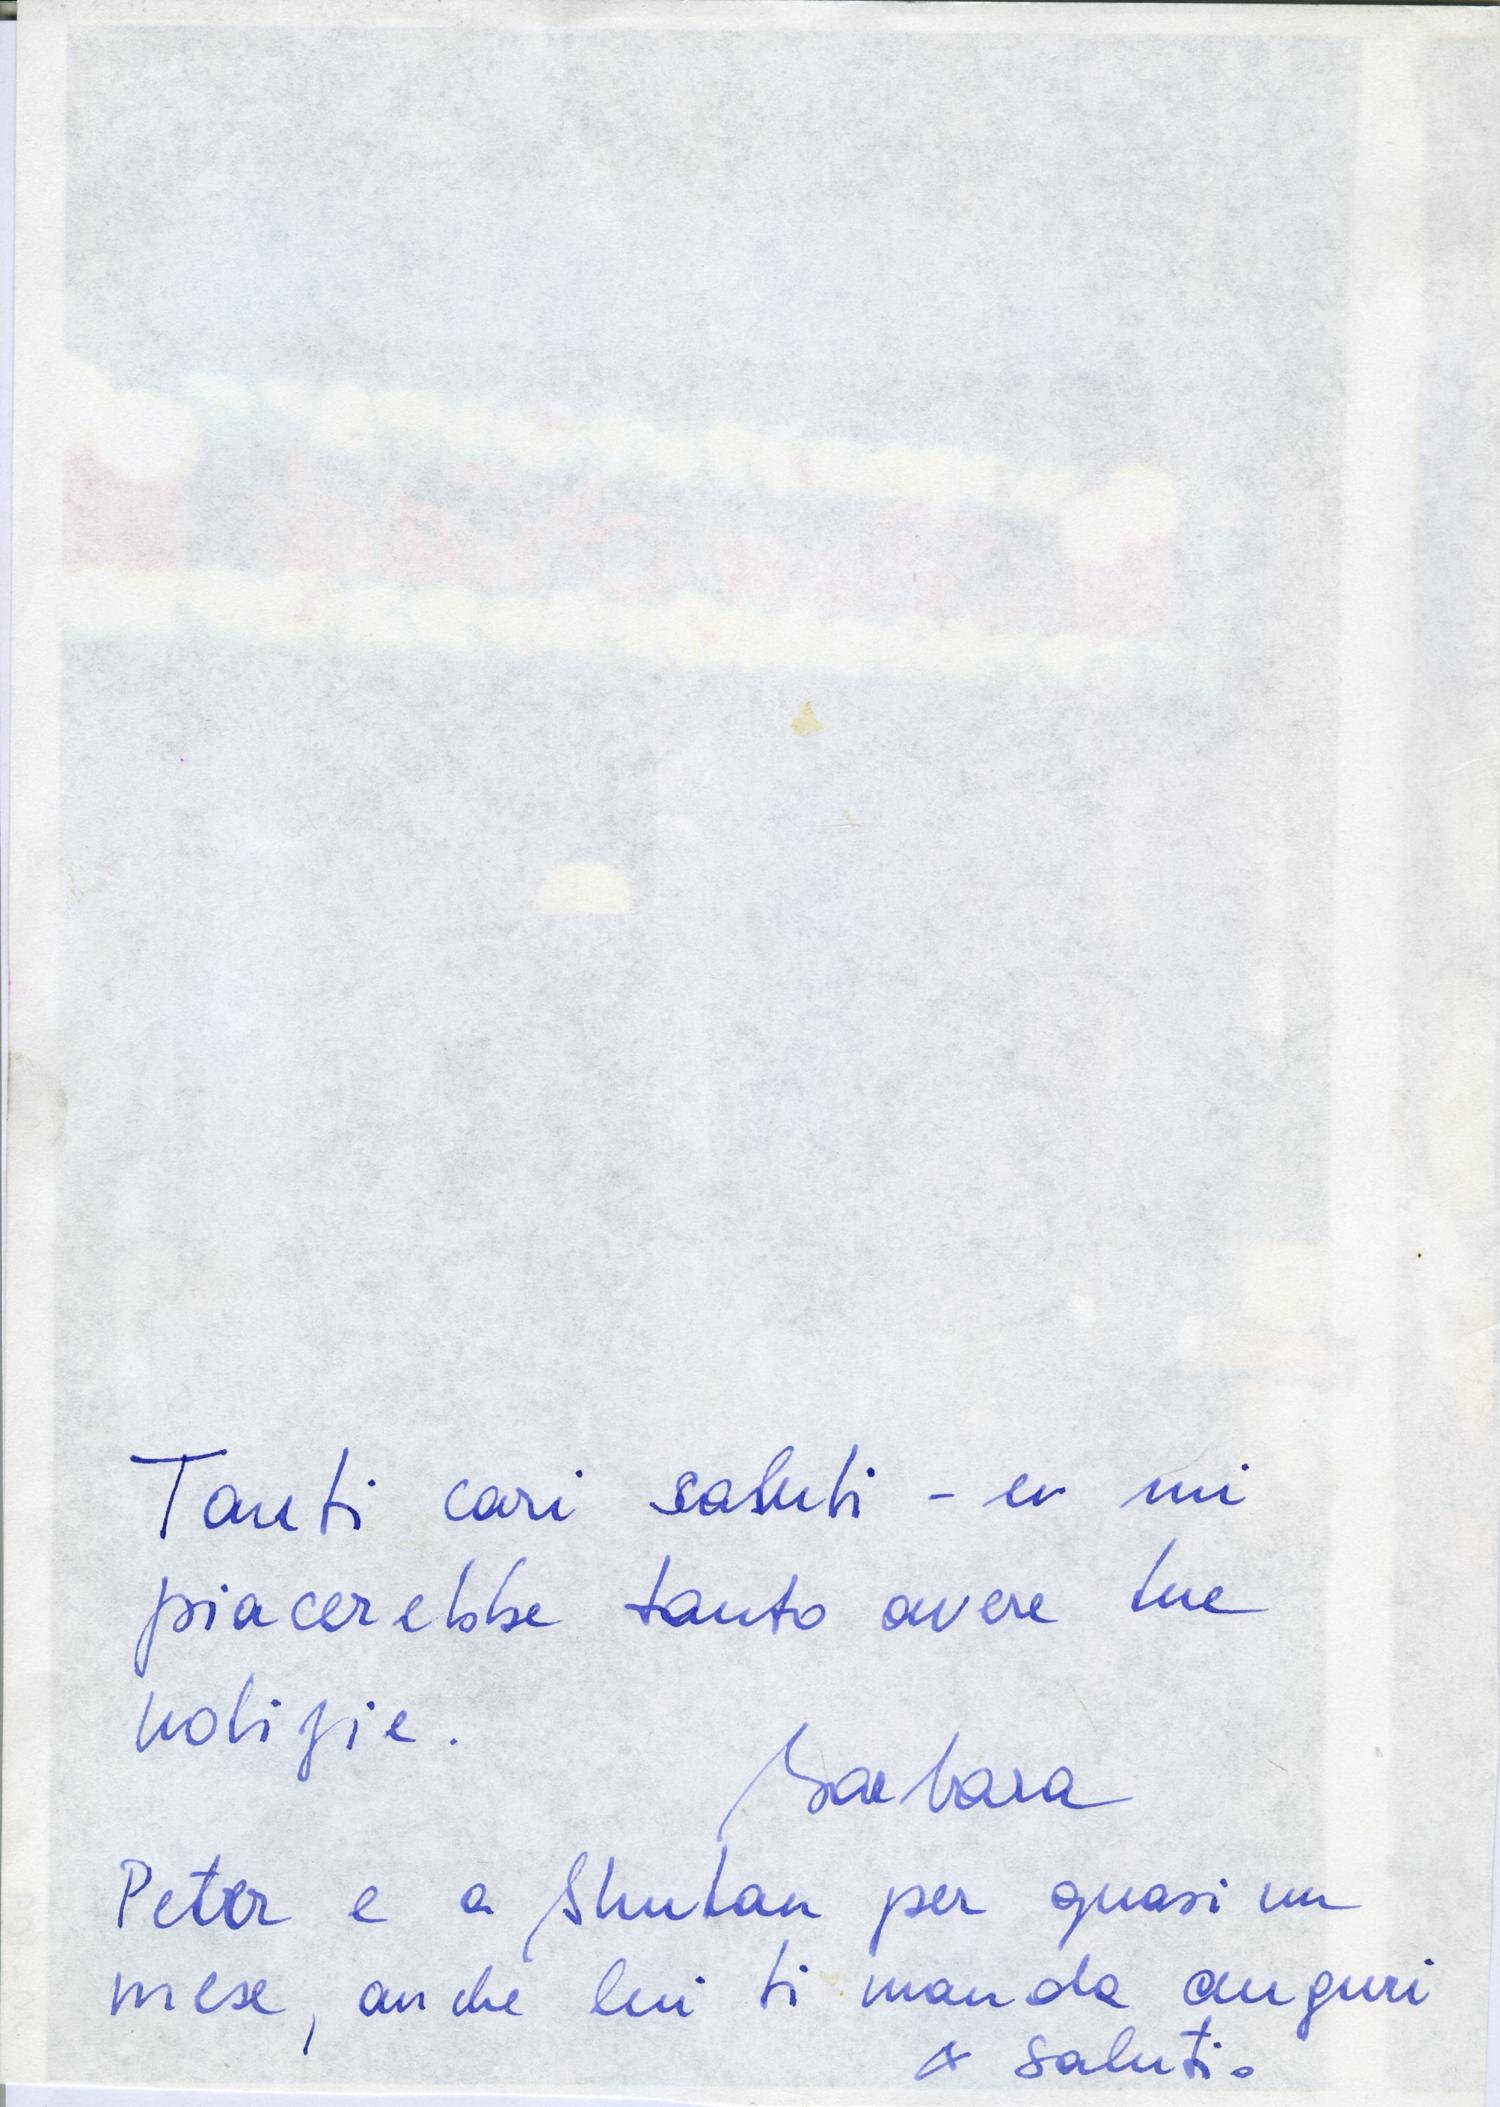 Tanti cari saluti - e mi
piacerebbe tanto avere tue
notizie.
Barbara
Peter e a Shutan per quasi un
mese, anche lui ti manda auguri
e saluti.